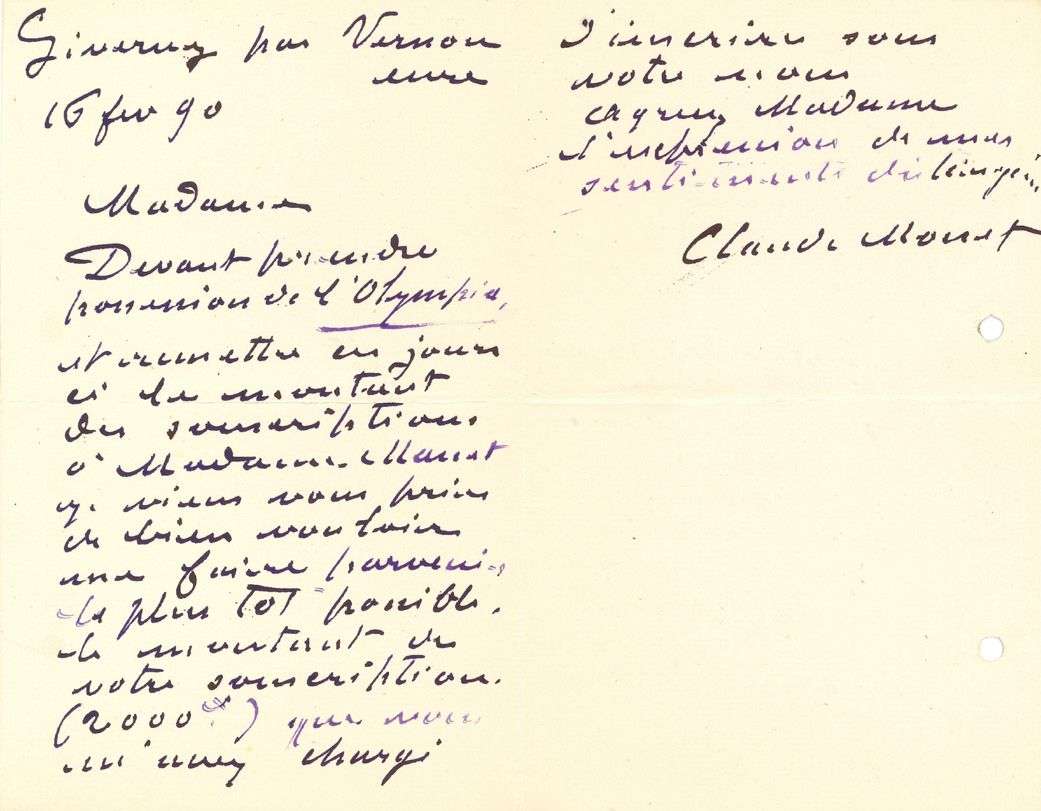 Giverny par Vernon
eure
16 fev 90
Madame
Devant prendre
possession de l'Olympia,
et remettre ces jours
ci le montant
des souscriptions
à Madame Manet
je viens vous prier
de bien vouloir
me faire parvenir
le plus tôt possible,
le montant de
votre souscription.
(2000 f) que vous
m'avez chargé
d'inscrire sous
votre nom
agreez Madame
l'expression de mes
sentiments distingués
Claude Monet